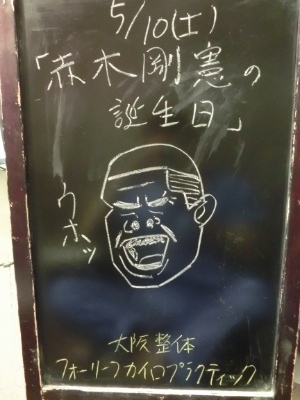 5/10(土)
「赤木剛憲の
誕生日」
ウホッ
大阪整体
フォーリーフカイロプラクティック